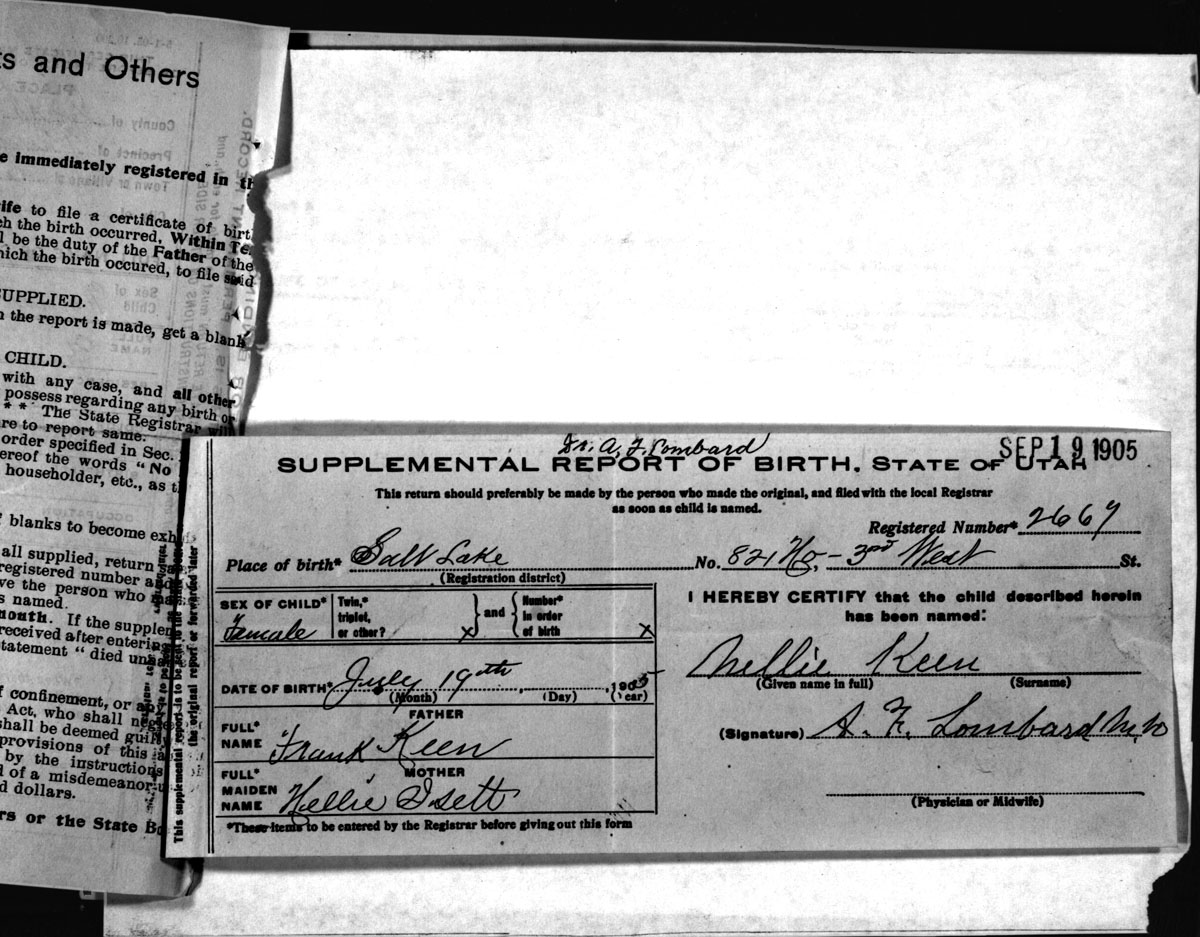 ts and Others
e immediately registered in th
ife to file a certificate of birt
ch the birth occurred, Within Te
l be the duty of the Father of the
hich the birth occured, to file said
SUPPLIED.
n the report is made, get a blank
CHILD.
with any case, and all other
possess regarding any birth or
** The State Registrar will
re to report same.
order specified in Sec.
ereof the words "No
householder, etc., as t
blanks to become exh
all supplied, return
registered number and
ve the person who
s named.
month. If the supplem
received after entering
tatement "died un
f confinement, or
Act, who shall negle
shall be deemed guil
provisions of this
by the instructions
d of a misdemeanor
d dollars.
rs or the State Bo
County of
Precinct of
Town or Village of
Sex of
Child
FULL
NAME
This supplemental report is to be
the original report or forwarded later
Dr. A. F. Lombard
SEP 19 1905
SUPPLEMENTAL REPORT OF BIRTH. STATE OF UTAH
This return should preferably be made by the person who made the original, and filed with the local Registrar
as soon as child is named.
Registered Number* 2667
Place of birth* Salt Lake No. 821 No, - 3rd West St.
(Registration district)
SEX OF CHILD* Female
Twin,*
triplet,
or other? x
and
Number*
in order
of birth x
DATE OF BIRTH* July 19th, 1905
(Month) (Day) (Year)
FATHER
FULL*
NAME Frank Keen
MOTHER
FULL*
MAIDEN
NAME Nellie Isett
*These items to be entered by the Registrar before giving out this form
I HEREBY CERTIFY that the child described herein
has been named:
Nellie Keen
(Given name in full) (Surname)
(Signature) A. F. Lombard M.D
(Physician or Midwife)